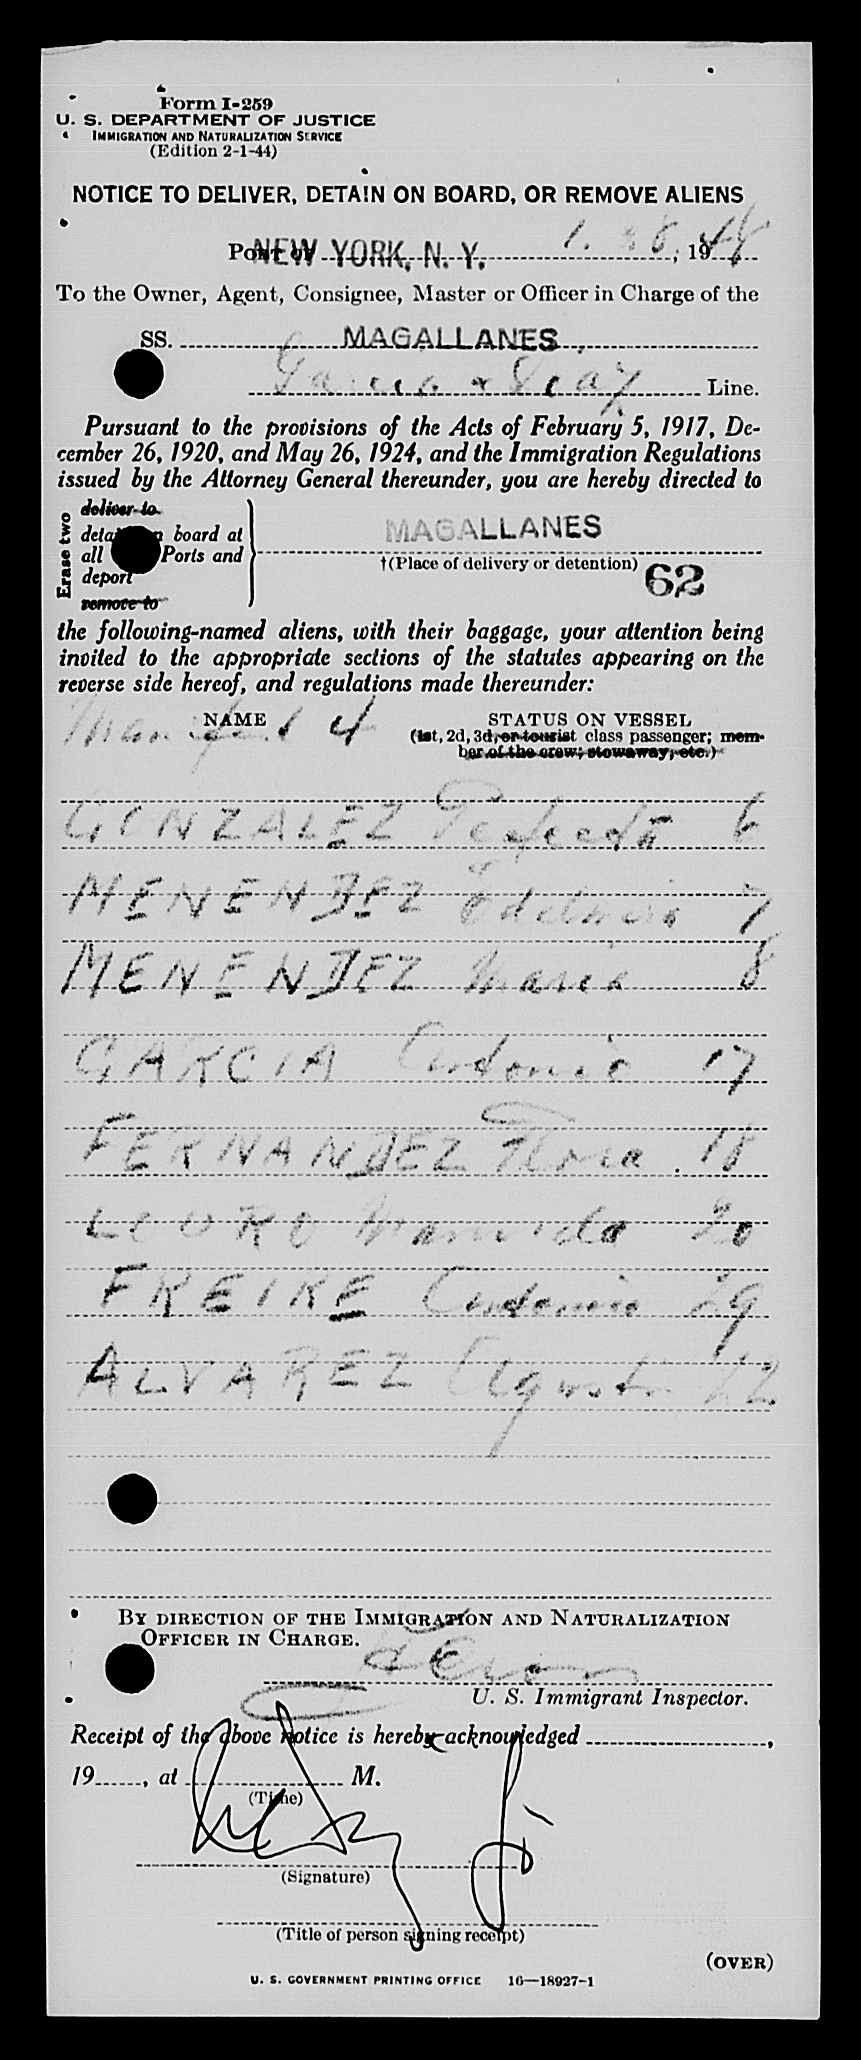 Form I-259
U. S. DEPARTMENT OF JUSTICE
IMMIGRATION AND NATURALIZATION SERVICE
(Edition 2-1-44)
NOTICE TO DELIVER, DETAIN ON BOARD, OR REMOVE ALIENS
Port of NEW YORK, N. Y. , 1948
To the Owner, Agent, Consignee, Master or Officer in Charge of the
SS. MAGALLANES
Garcia & Diaz Line.
Pursuant to the provisions of the Acts of February 5, 1917, De-
cember 26, 1920, and May 26, 1924, and the Immigration Regulations
issued by the Attorney General thereunder, you are hereby directed to
Erase two
deliver to
detain on board at MAGALLANES
all Ports and
†(Place of delivery or detention) 62
deport
remove to
the following-named aliens, with their baggage, your attention being
invited to the appropriate sections of the statutes appearing on the
reverse side hereof, and regulations made thereunder:
Manifest 4
NAME STATUS ON VESSEL
(1st, 2d, 3d, or tourist class passenger; mem-
ber of the crew; stowaway, etc.)
GONZALEZ Perfecta 6
MENENDEZ 7
MENENDEZ Maria 8
GARCIA Antonio 17
FERNANDEZ Flora 18
LOURO 20
FREIRE Antonio 29
ALVAREZ Agustin 22
BY DIRECTION OF THE IMMIGRATION AND NATURALIZATION
OFFICER IN CHARGE.
U. S. Immigrant Inspector.
Receipt of the above notice is hereby acknowledged ,
19 , at M.
(Time)
(Signature)
(Title of person signing receipt)
(OVER)
U. S. GOVERNMENT PRINTING OFFICE 16—18927-1